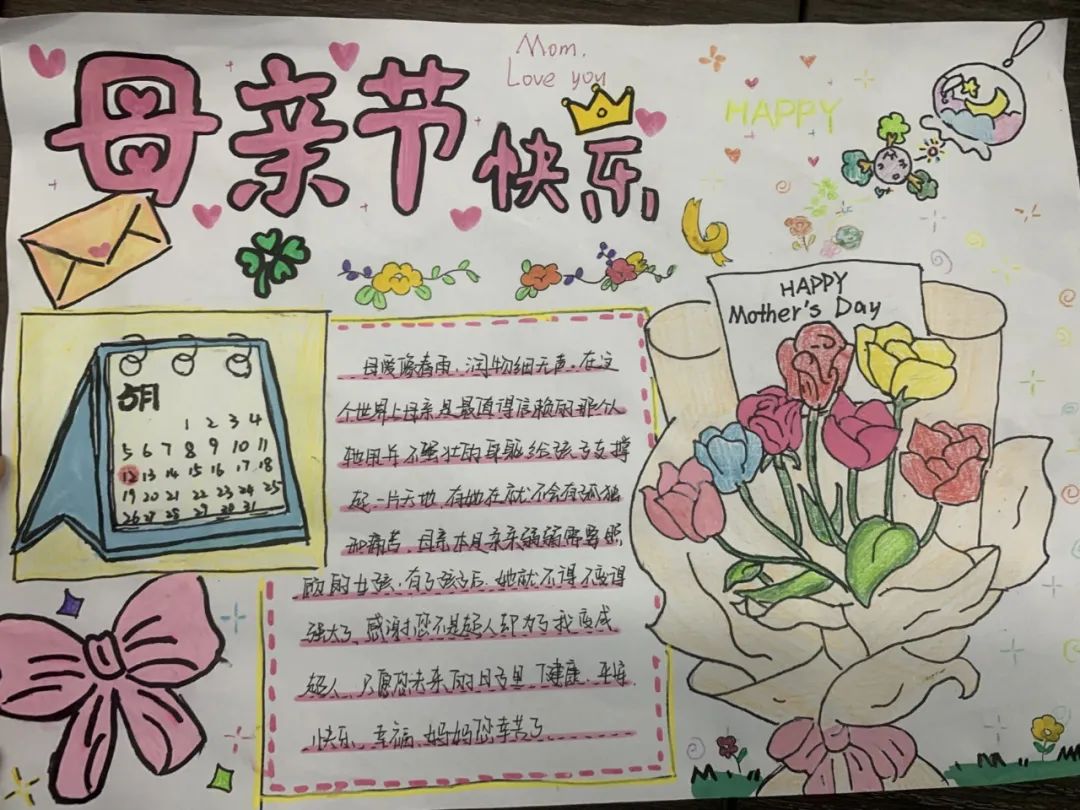 Mom.
Love you
母亲节快乐
HAPPY
HAPPY
Mother's Day
5月
1 2 3 4
5 6 7 8 9 10 11
12 13 14 15 16 17 18
19 20 21 22 23 24 25
26 27 28 29 30 31
母爱像春雨,润物细无声。在这
个世界上母亲是最值得信赖的那个人
她用并不强壮的身躯给孩子支撑
起一片天地,有她在就不会有孤独
和痛苦,母亲本是柔柔弱弱需要照
顾的女孩,有了孩子后,她就不得不变得
强大了,感谢您不是超人却为了我变成
超人,只愿您未来的日子里健康、平安
快乐、幸福,妈妈您辛苦了